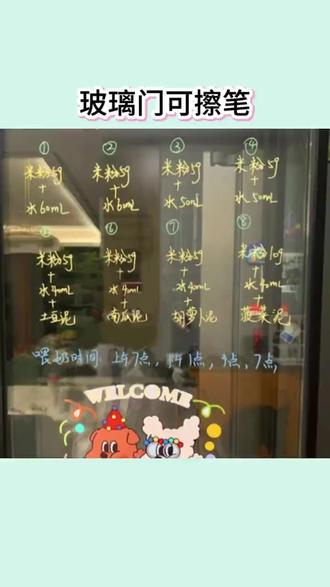 玻璃门可擦笔
① ② ③ ④
米粉5g 米粉5g 米粉5g 米粉5g
+ + + +
水60mL 水60mL 水50mL 水50mL
⑤ ⑥ ⑦ ⑧
米粉5g 米粉5g 米粉5g 米粉10g
+ + + +
水40mL 水40mL 水40mL 水40mL
+ + + +
土豆泥 南瓜泥 胡萝卜泥
喂奶时间 上午7点, 下午1点, 7点,
WELCOME